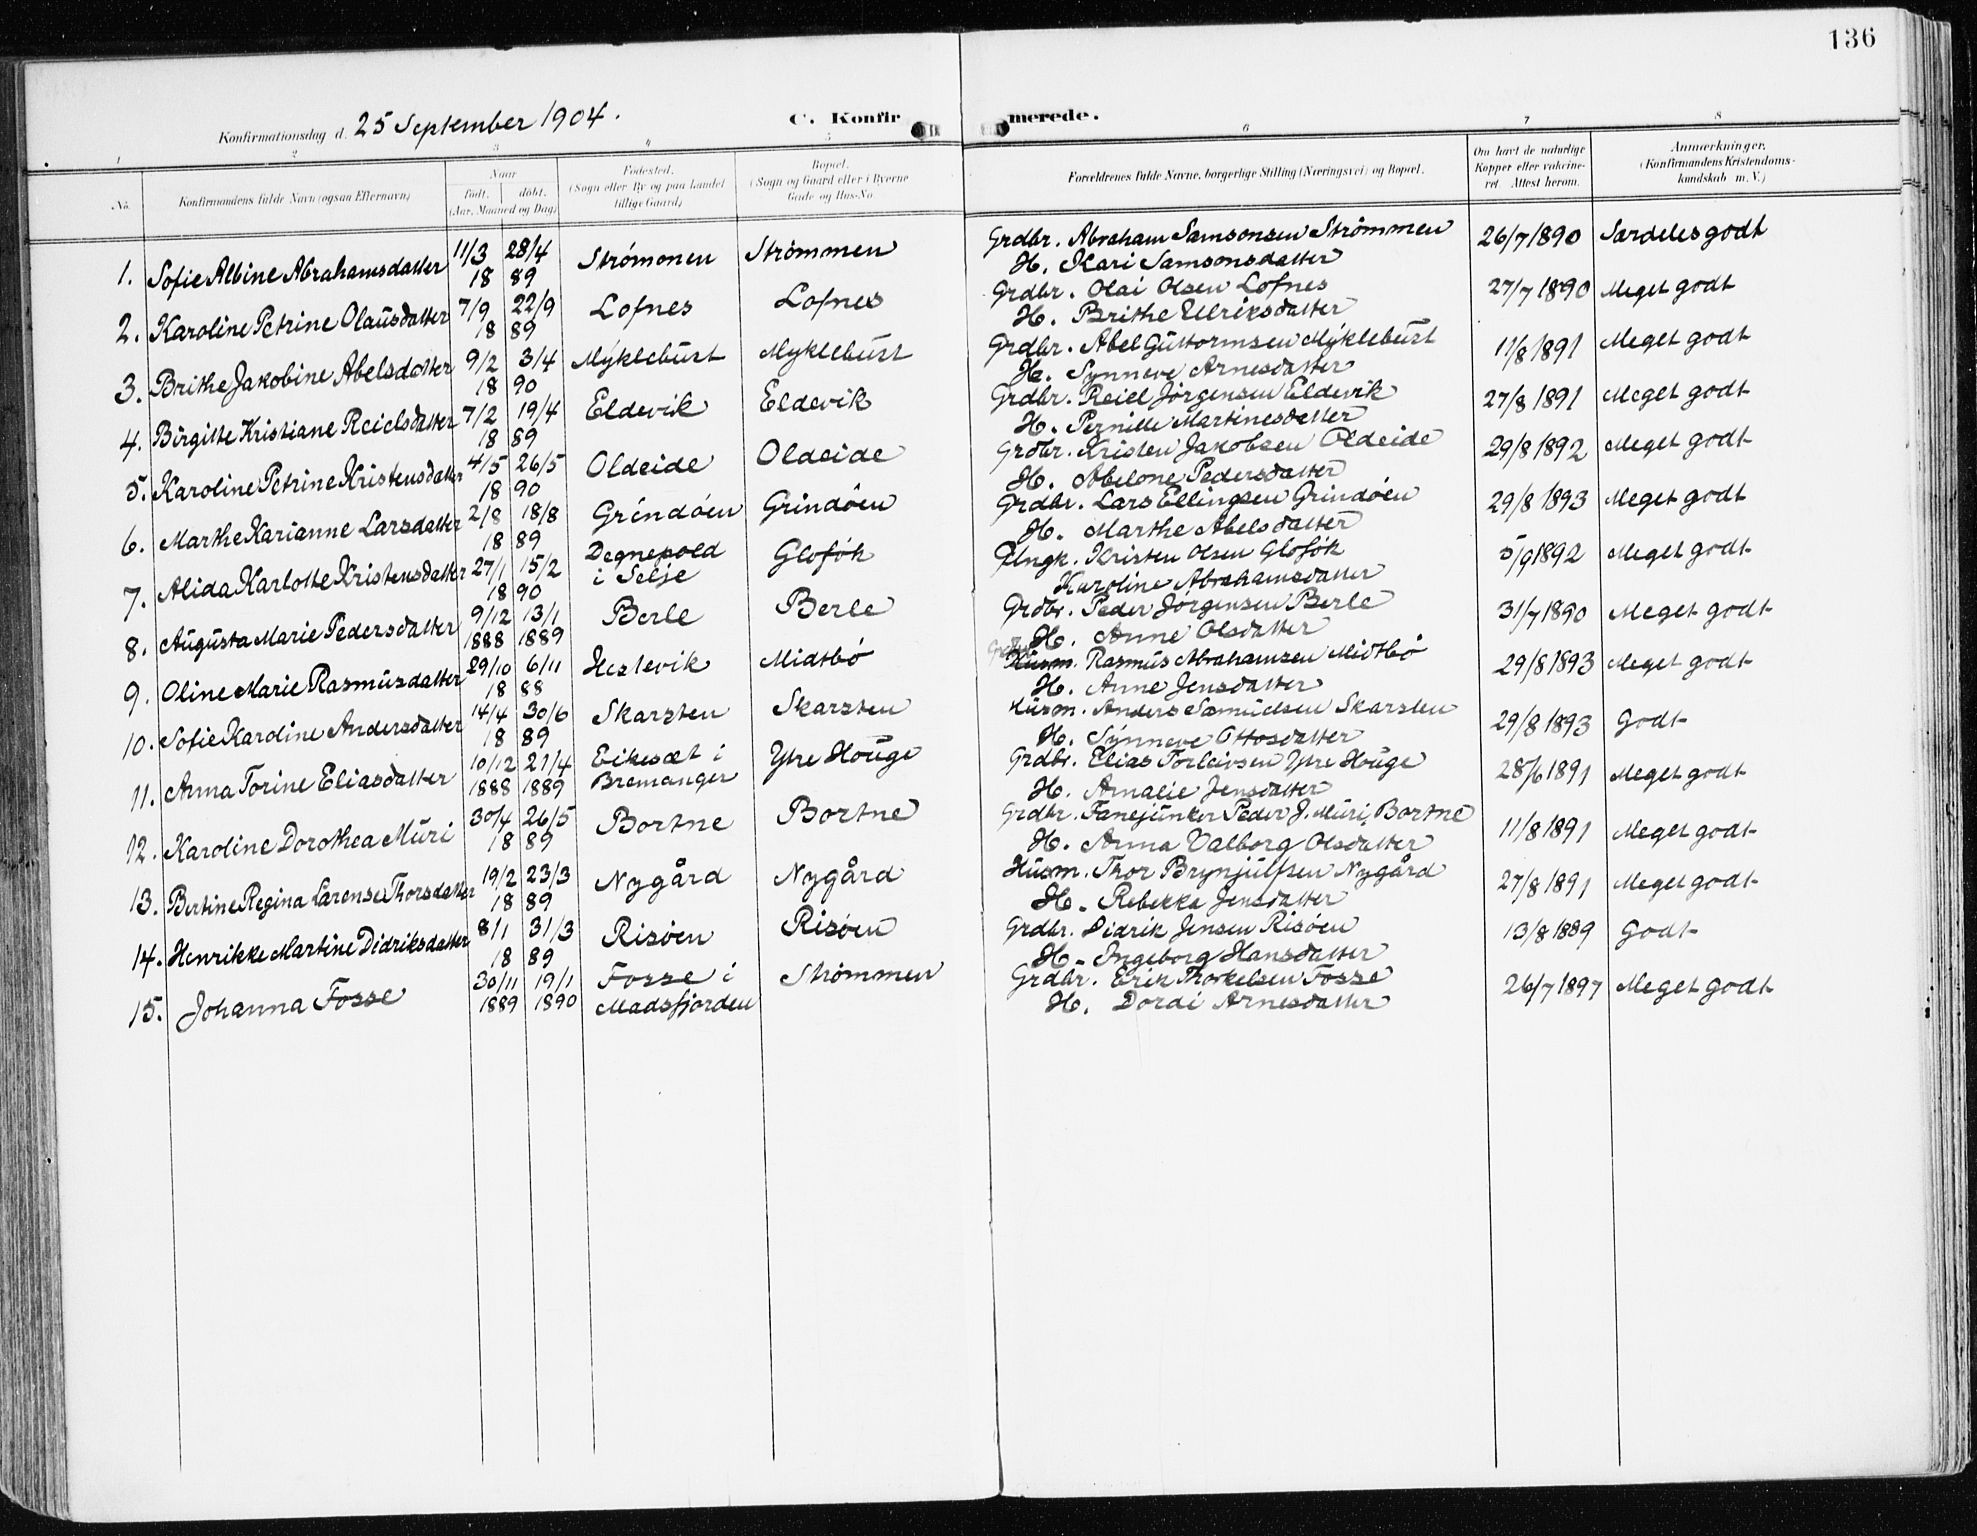 136
Konfirmationsdag d. 25 September 1904.
C. Konfirmerede.
1 2 3 4 5 6 7 8
No. Konfirmandens fulde Navn (ogsaa Efternavn) Naar født. døbt. (Aar, Maaned og Dag) Fødested. (Sogn eller By og paa Landet tillige Gaard) Bopæl. (Sogn og Gaard eller i Byerne Gade og Hus-No. Forældrenes fulde Navne, borgerlige Stilling (Næringsvei) og Bopæl. Om havt de naturlige Kopper eller vakcineret. Attest herom. Anmærkninger. (Konfirmandens Kristendomskundskab m. V.)
1. Sofie Albine Abrahamsdatter 11/3 28/4 18 89 Strømmen Strømmen Grdbr. Abraham Samsonsen Strømmen 26/7 1890 Særdeles godt
H. Kari Samsonsdatter
2. Karoline Petrine Olausdatter 7/9 22/9 18 89 Lofnes Lofnes Grdbr. Olai Olsen Lofnes 27/7 1890 Meget godt
H. Brithe Ellriksdatter
3. Brithe Jakobine Abelsdatter 9/2 3/4 18 90 Myklebust Myklebust Grdbr. Abel Guttormsen Myklebust 11/8 1891 Meget godt
H. Synneve Arnesdatter
4. Birgitte Kristiane Reielsdatter 7/2 19/4 18 89 Eldevik Eldevik Grdbr. Reiel Jørgensen Eldevik 27/8 1891 Meget godt
H. Pernille Martinesdatter
5. Karoline Petrine Kristensdatter 4/5 26/5 18 90 Oldeide Oldeide Grdbr. Kristen Jakobsen Oldeide 29/8 1892 Meget godt
H. Abelone Pedersdatter
6. Marthe Karianne Larsdatter 2/8 18/8 18 89 Grindøen Grindøen Grdbr. Lars Ellingsen Grindøen 29/8 1893 Meget godt
H. Marthe Abelsdatter
7. Alida Karlotte Kristensdatter 27/1 15/2 18 90 Degnepold i Selje Gloføk Kristen Olsen Gloføk 5/9 1892 Meget godt
Karoline Abrahamsdatter
8. Augusta Marie Pedersdatter 9/12 13/1 1888 1889 Berle Berle Grdbr. Peder Jørgensen Berle 31/7 1890 Meget godt
H. Anne Olsdatter
9. Oline Marie Rasmusdatter 29/10 6/11 18 88 Hestevik Midtbø Husm. Rasmus Abrahamsen Midtbø 29/8 1893 Meget godt
H. Anne Jensdatter
10. Sofie Karoline Andersdatter 14/4 30/6 18 89 Skarsten Skarsten Husm. Anders Samuelsen Skarsten 29/8 1893 Godt
H. Synneve Ottosdatter
11. Anna Torine Eliasdatter 10/12 21/4 1888 1889 Eikesæt i Bremanger Ytre Houge Grdbr. Elias Torleivsen Ytre Houge 28/6 1891 Meget godt
H. Amalie Jensdatter
12. Karoline Dorothea Muri 30/4 26/5 18 89 Bortne Bortne Grdbr. Fanejunker Peder J. Muri, Bortne 11/8 1891 Meget godt
H. Anna Valborg Olsdatter
13. Bertine Regina Larense Thorsdatter 19/2 23/3 18 89 Nygård Nygård Husm. Thor Brynjulfsen Nygård 27/8 1891 Meget godt
H. Rebekka Jensdatter
14. Henrikke Martine Didriksdatter 8/1 31/3 18 89 Risøen Risøen Grdbr. Didrik Jensen Risøen 13/8 1889 Godt
H. Ingeborg Hansdatter
15. Johanna Fosse 30/11 19/1 1889 1890 Fosse i Madsfjorden Strømmen Grdbr. Erik Thorkelsen Fosse 26/7 1897 Meget godt
H. Dordi Arnesdatter